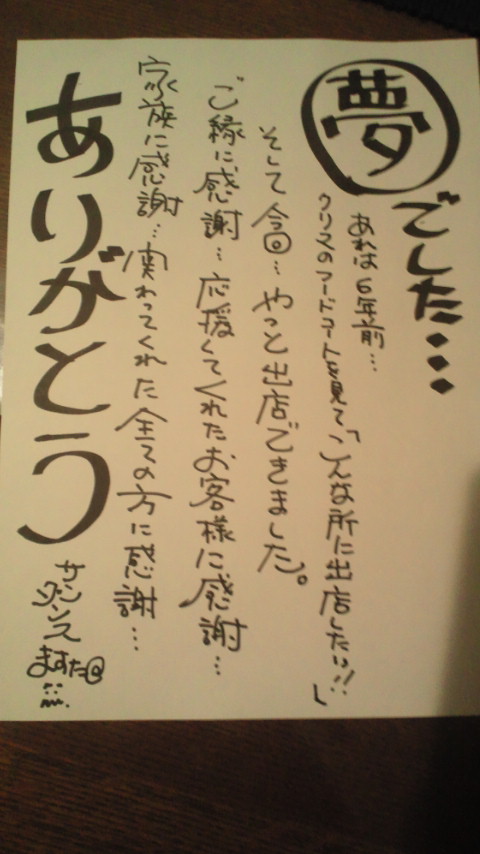 夢でした…
あれは6年前…
クリスマのフードコートを見て「こんな所に出店したい!!」
そして今回…やっと出店できました。
ご縁に感謝…応援してくれたお客様に感謝…
家族に感謝…関わってくれた全ての方に感謝…
ありがとう
サンダンス
ますた@